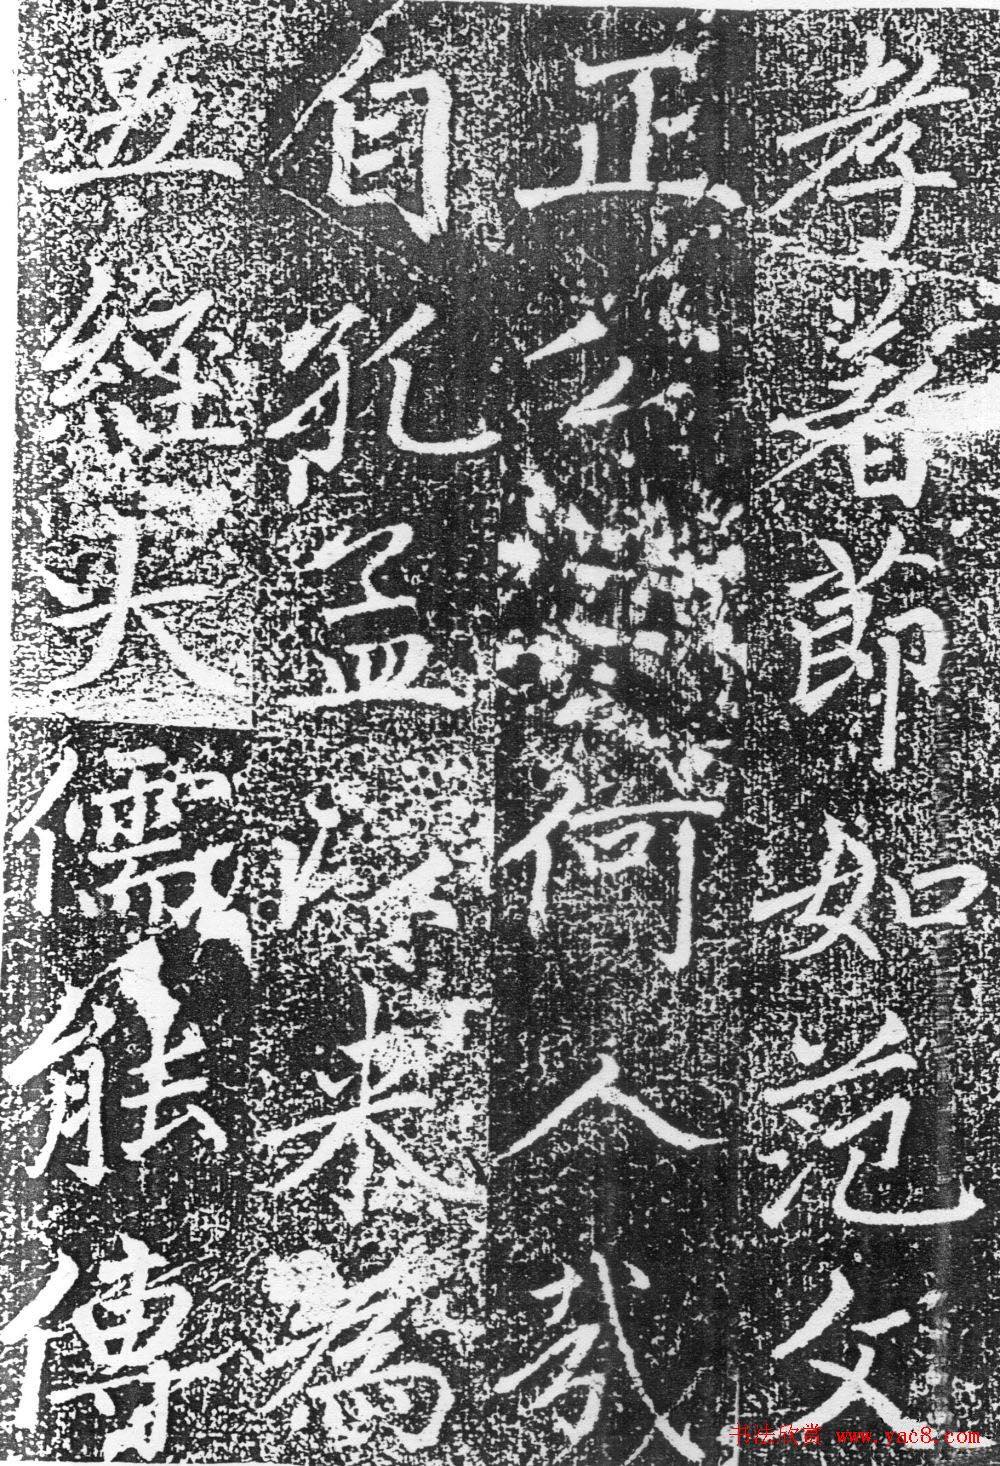 孝著節如范文
正公何人哉
自孔孟以來為
五經大儒能傳
书法欣赏 www.yac8.com